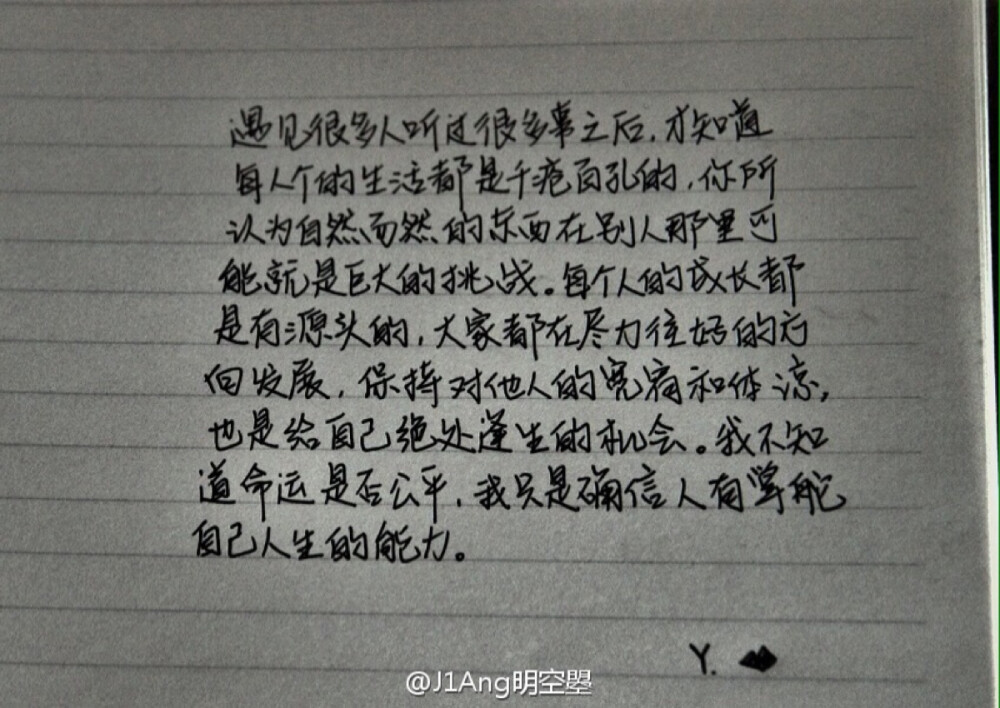 遇见很多人听过很多事之后,才知道
每个人的生活都是千疮百孔的,你所
认为自然而然的东西在别人那里可
能就是巨大的挑战。每个人的成长都
是有源头的,大家都在尽力往好的方
向发展,保持对他人的宽宥和体谅,
也是给自己绝处逢生的机会。我不知
道命运是否公平,我只是确信人有掌舵
自己人生的能力。
Y.
@J1Ang明空曌